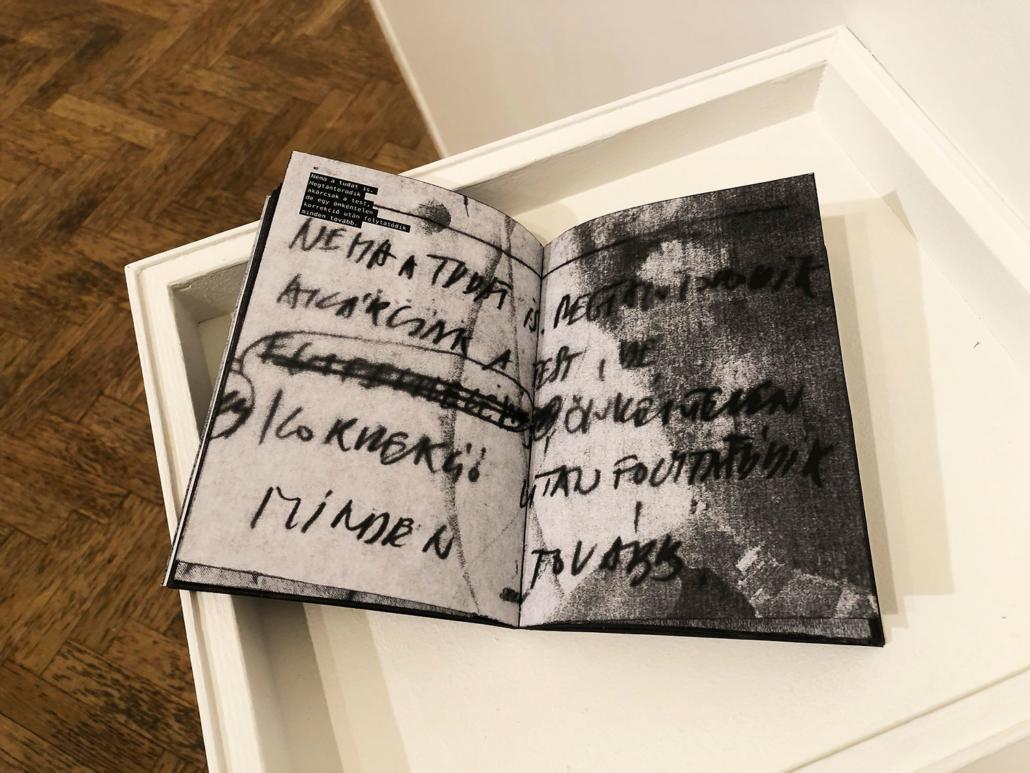 Néma a tudat is.
Megtántorodik
akárcsak a test,
de egy önkéntelen
korrekció után folytatódik
minden tovább.
NÉMA A TUDAT IS. MEGTÁNTORODIK
AKÁRCSAK A TEST, DE
ÖNKÉNTELEN
KORREKCIÓ UTÁN FOLYTATÓDIK
MINDEN TOVÁBB.